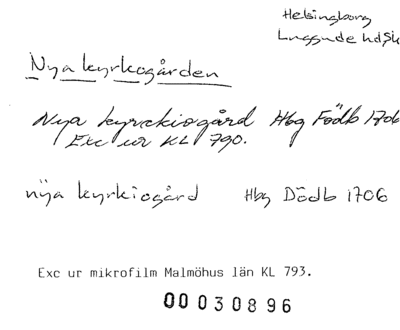 Helsingborg
Luggude hdsk
Nya kyrkogården
Nya kyrckiogård Hbg Födb 1706
Exc ur KL 790.
nÿa kyrkiogård Hbg Dödb 1706
Exc ur mikrofilm Malmöhus län KL 793.
00030896